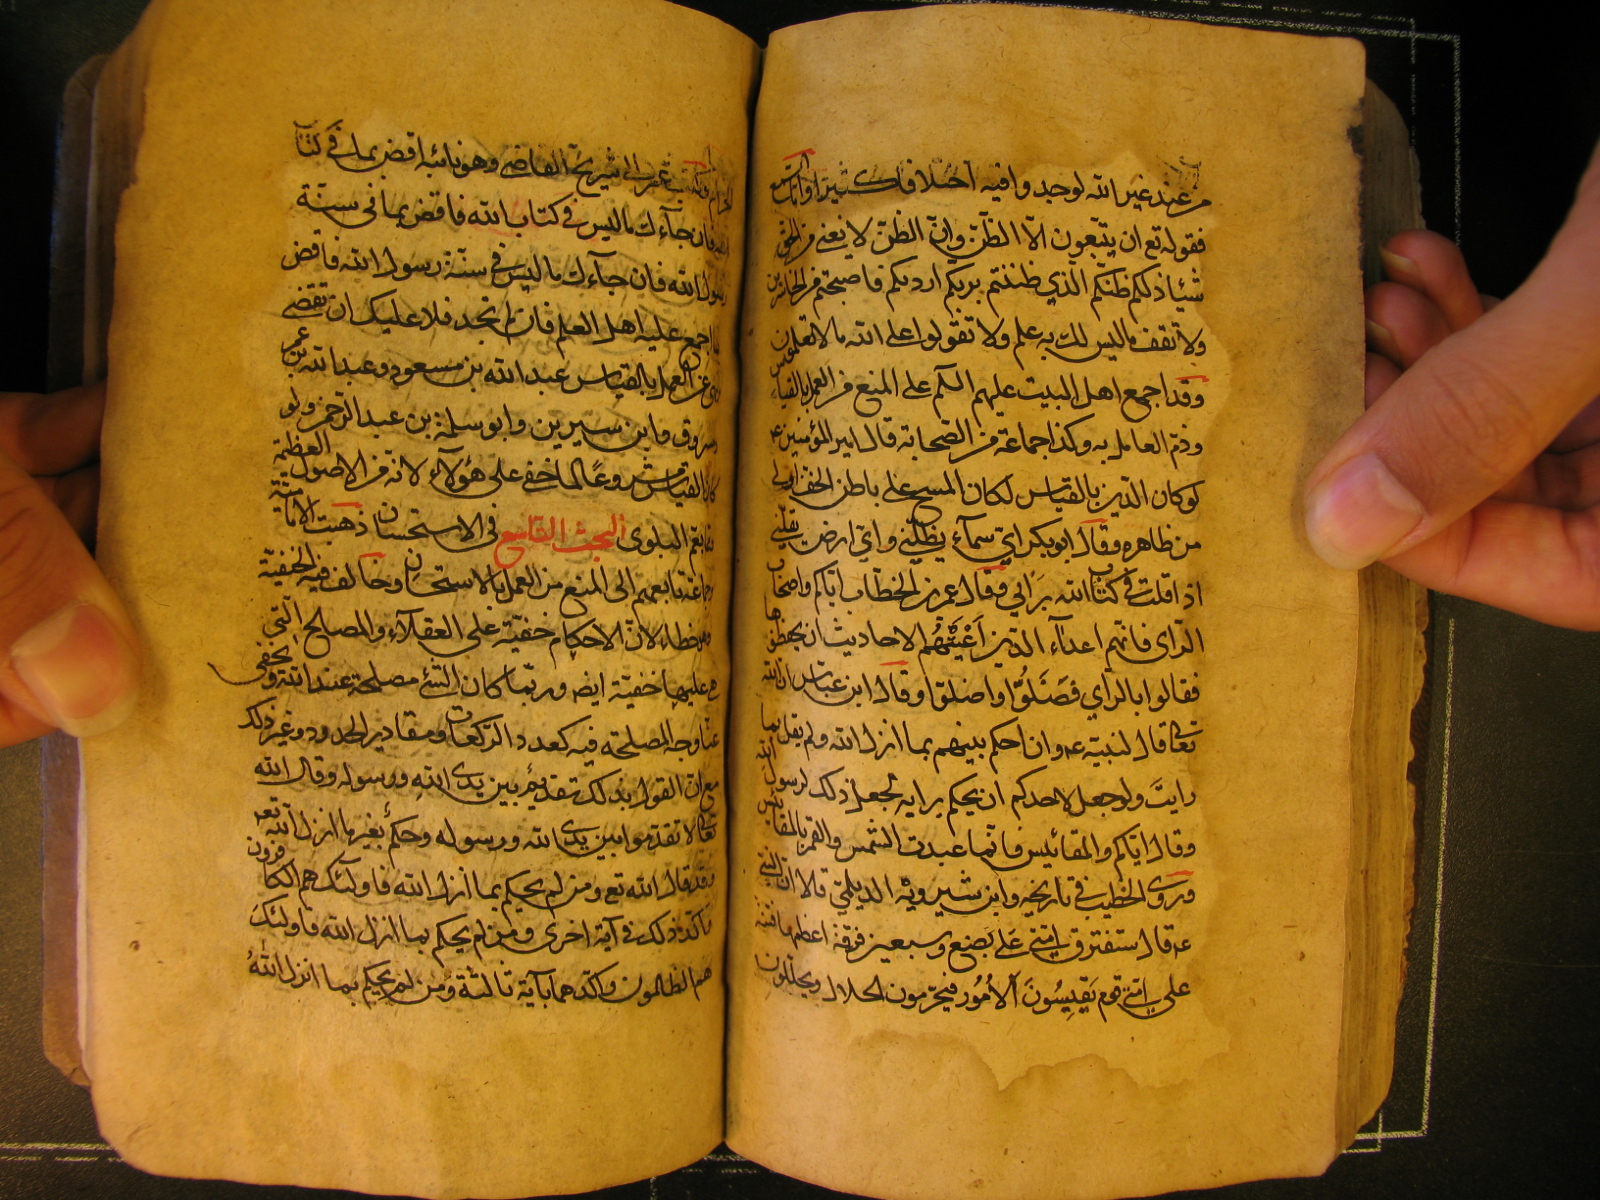 من عند غير الله لوجدوا فيه اختلافا كثيرا واما السنة
فقوله تع ان يتبعون الا الظن وان الظن لا يغني من الحق
شيئا ذلكم ظنكم الذي ظننتم بربكم ارديكم فاصبحتم من الخاسرين
ولا تقف ما ليس لك به علم ولا تقولوا على الله ما لا تعلمون
وقد اجمع اهل البيت عليهم السلم على المنع من العمل بالقياس
وذم العامل به وكذا جماعة من الصحابة قال امير المؤمنين ع
لو كان الدين بالقياس لكان المسح على باطن الخف اولى
من ظاهره وقال ابو بكر اي سماء يظلني واي ارض يقلني
اذا قلت في كتاب الله برايي وقال عمر بن الخطاب اياكم واصحاب
الراي فانهم اعداء الدين اعيتهم الاحاديث ان يحفظوها
فقالوا بالراي فضلوا واضلوا وقال ابن عباس ان الله
تعالى قال لنبيه ع وان احكم بينهم بما انزل الله ولم يقل بما
رايت ولو جعل لاحدكم ان يحكم برايه لجعل ذلك لرسول الله
وقال اياكم والمقائيس فانما عبدت الشمس والقمر بالمقائيس
وروى الخطيب في تاريخه وابن شيرويه الديلمي قالا ان النبي
ع قال ستفترق امتي على بضع وسبعين فرقة اعظمها فتنة
على امتي قوم يقيسون الامور فيحرمون الحلال ويحللون
الحرام وكتب عمر الى شريح القاضي وهو نائبه اقض بما في كتاب
الله فان جاءك ما ليس في كتاب الله فاقض بما في سنة
رسول الله فان جاءك ما ليس في سنة رسول الله فاقض
ما اجمع عليه اهل العلم فان لم تجد فلا عليك ان تقضي
ونهى عن العمل بالقياس عبد الله بن مسعود وعبد الله بن عمر
ومسروق وابن سيرين وابو سلمة بن عبد الرحمن ولو
كان القياس مشروعا لما خفي على هؤلاء لانه من الاصول العظيمة
تعم البلوى البحث التاسع في الاستحسان ذهبت الامامية
وجماعة تابعهم الى المنع من العمل بالاستحسان وخالف فيه الحنفية
وهو خطاء لان الاحكام خفية على العقلاء والمصالح التي
هي عليها خفية ايضه وربما كان الشئ مصلحة عند الله ويخفى
عنا وجه المصلحة فيه كعدد الركعات ومقادير الحدود وغير ذلك
مع ان القول بذلك تقديم بين يدي الله ورسوله وقال الله
تعالى لا تقدموا بين يدي الله ورسوله وحكم بغير ما انزل الله تع
وقد قال الله تع ومن لم يحكم بما انزل الله فاولئك هم الكافرون
تاكد ذلك في آية اخرى ومن لم يحكم بما انزل الله فاولئك
هم الظالمون واكدهما بآية ثالثة ومن لم يحكم بما انزل الله